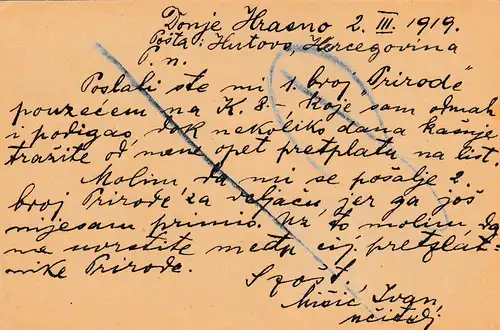 Donje Hrasno 2. III. 1919.
Pošta: Hutovo, Hercegovina
P. n.
Poslali ste mi 1. broj „Prirode"
pouzećem na K. 8 – koje sam odmah
i podigao, dok nekoliko dana kašnje
tražite od mene opet pretplatu na list
Molim, da mi se pošalje 2.
broj „Prirode" za veljaču, jer ga još
nijesam primio. Uz to molim, da
me uvrstite među cij. pretplat-
nike Prirode.
S pošt.
Mišić Ivan,
učitelj